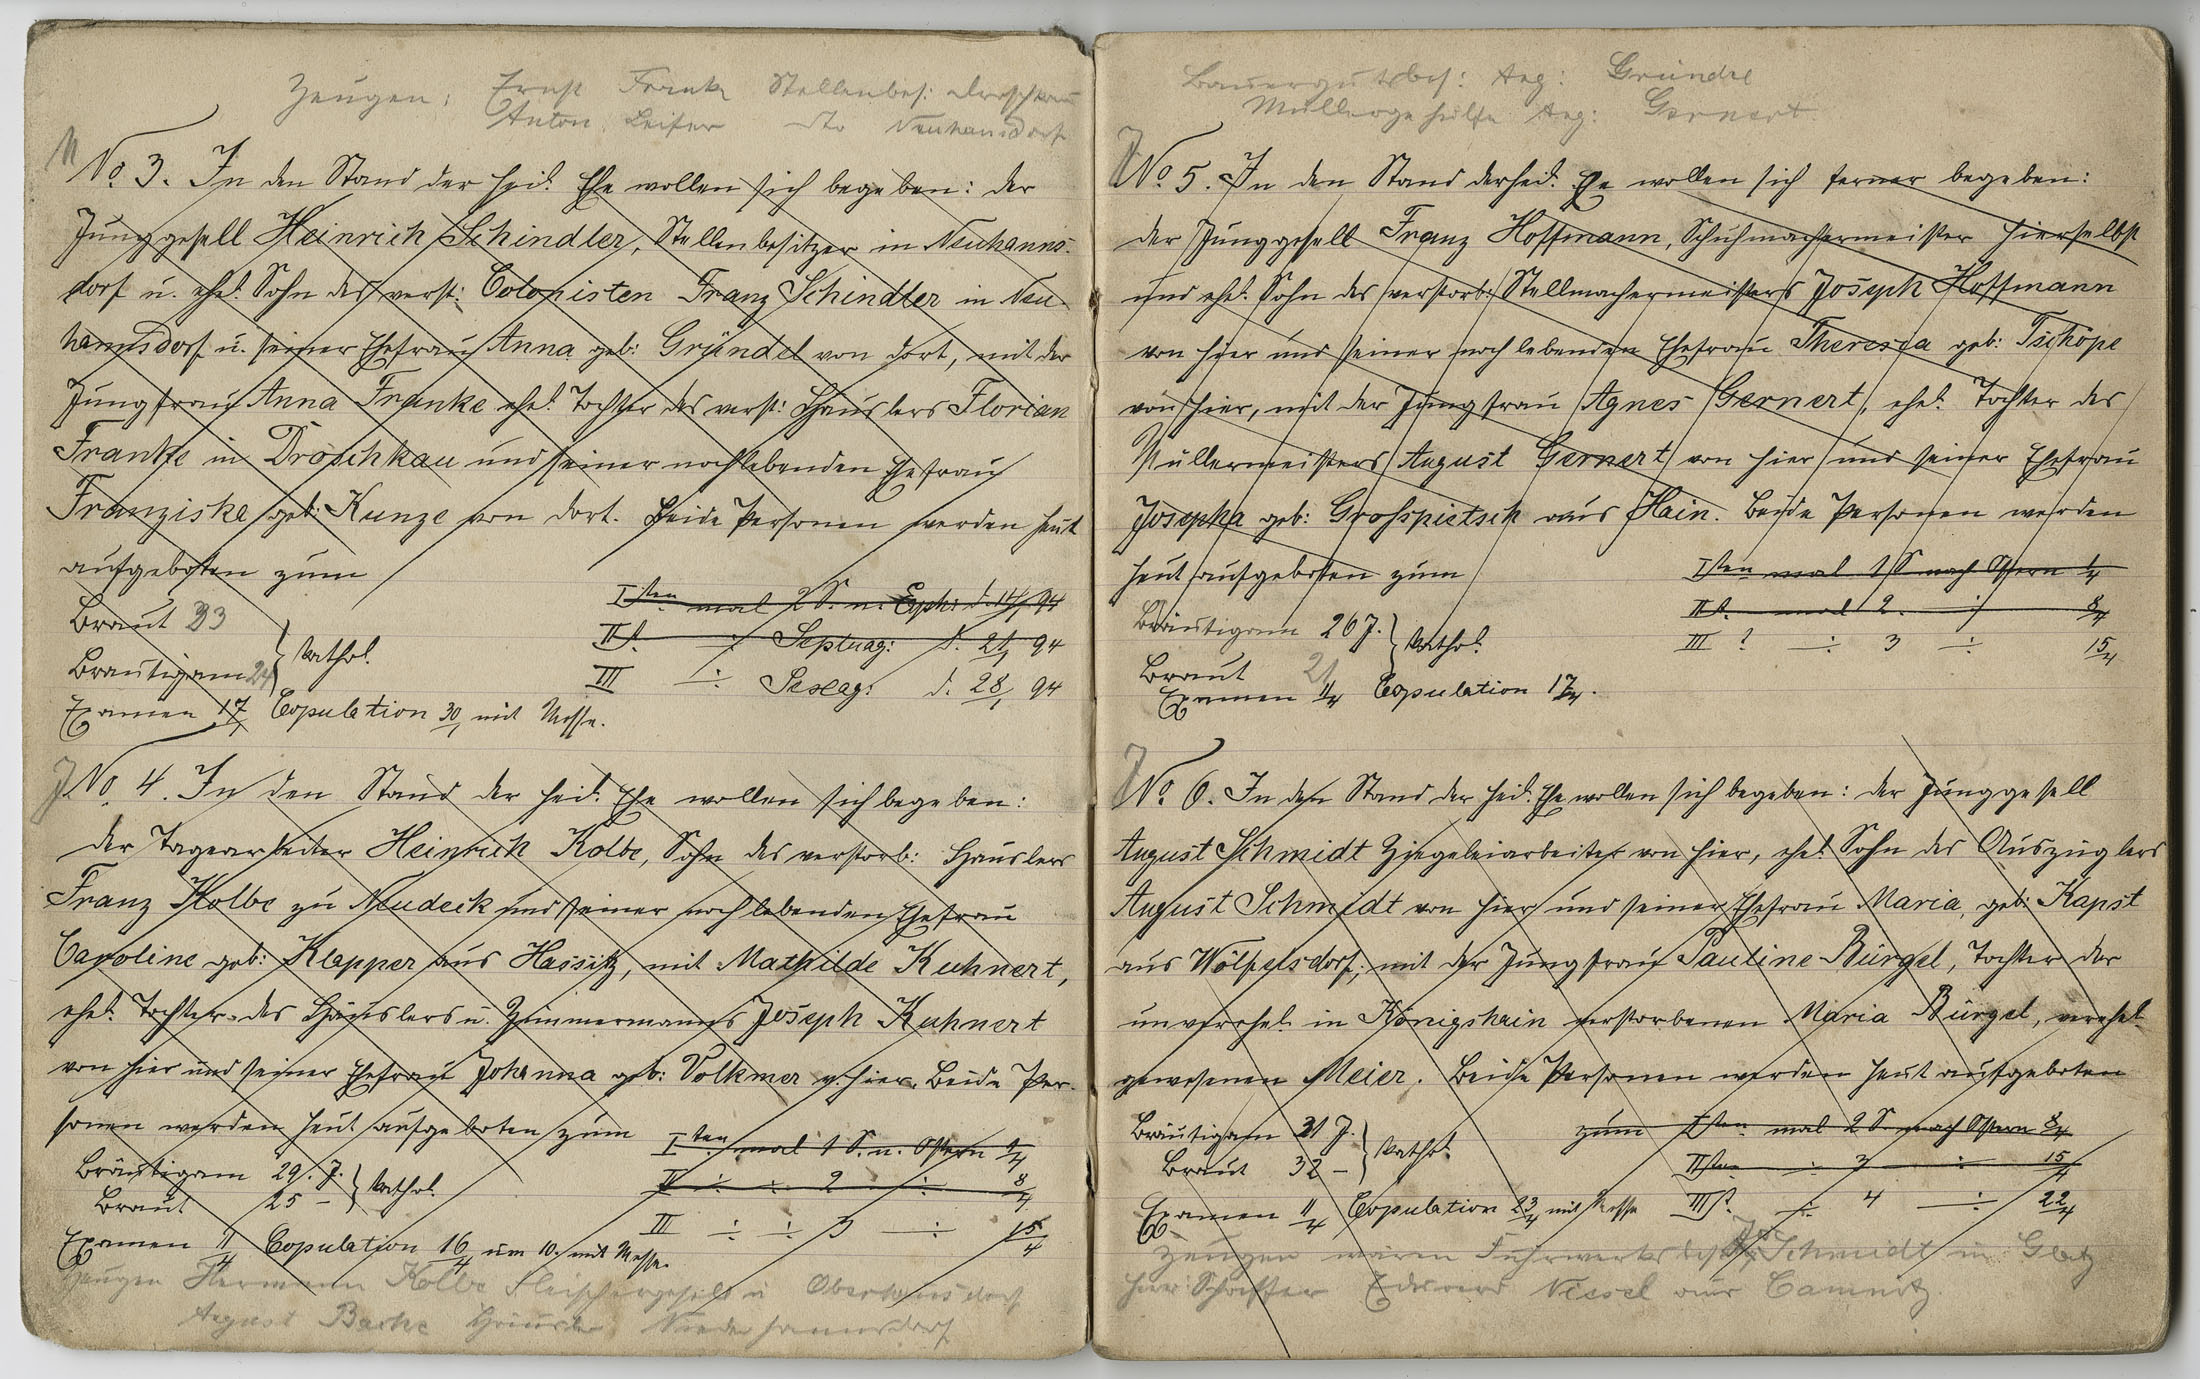 Zeugen: Ernst Frank Stellenbes: Droschkau
Anton Leifer dto Neuhansdorf
No. 3. In den Stand der heil. Ehe wollen sich begeben: der
Junggesell Heinrich Schindler, Stellenbesitzer in Neuhanns-
dorf u. ehel. Sohn des verst: Colonisten Franz Schindler in Neu-
hannsdorf u. seiner Ehefrau Anna geb: Gründel von dort, mit der
Jungfrau Anna Franke ehel. Tochter des verst: Häuslers Florian
Franke in Droschkau und seiner noch lebenden Ehefrau
Franziska geb: Kunze von dort. Beide Personen werden heut
aufgeboten zum
Iten mal 2 S. n. Eph: d. 14/1 94
II t. ÷ Septuag: d. 21/1 94
III ÷ Sexag: d. 28/1 94
Braut 23
Bräutigam 24 } kathol.
Examen 17/1 Copulation 30/1 mit Messe.
No. 4. In den Stand der heil. Ehe wollen sich begeben:
der Tagearbeiter Heinrich Kolbe, Sohn des verstorb: Häuslers
Franz Kolbe zu Neudeck und seiner noch lebenden Ehefrau
Caroline geb: Klapper aus Hassitz, mit Mathilde Kuhnert,
ehel. Tochter des Häuslers u. Zimmermanns Joseph Kuhnert
von hier und seiner Ehefrau Johanna geb: Volkmer v. hier. Beide Per-
sonen werden heut aufgeboten zum
Iten mal 1 S. n. Ostern 1/4
II ÷ ÷ 2 ÷ 8/4
III ÷ ÷ 3 ÷ 15/4
Bräutigam 29. J.
Braut 25 – } kathol.
Examen 11/4 Copulation 16/4 um 10. mit Messe.
Zeugen Hermann Kolbe Fleischergesell in Oberhansdorf
August Barke Häusler Niederhannsdorf
Bauergutsbes: Aug: Gründel
Müllergehülfe Aug: Gernert
No. 5. In den Stand der heil. Ehe wollen sich ferner begeben:
der Junggesell Franz Hoffmann, Schuhmachermeister hierselbst
und ehel. Sohn des verstorb: Stellmachermeisters Joseph Hoffmann
von hier und seiner noch lebenden Ehefrau Theresia geb: Tschöpe
von hier, mit der Jungfrau Agnes Gernert, ehel. Tochter des
Müllermeisters August Gernert von hier und seiner Ehefrau
Josepha geb: Grohspietsch aus Hain. Beide Personen werden
heut aufgeboten zum
Iten mal 1 S nach Ostern 1/4
II t. mal 2. ÷ 8/4
III t ÷ 3 ÷ 15/4
Bräutigam 26 J.
Braut 21 } kathol.
Examen 11/4 Copulation 17/4.
No. 6. In den Stand der heil. Ehe wollen sich begeben: der Junggesell
August Schmidt Ziegeleiarbeiter von hier, ehel. Sohn des Auszüglers
August Schmidt von hier und seiner Ehefrau Maria, geb: Kapst
aus Wölfelsdorf; mit der Jungfrau Pauline Bürgel, Tochter der
unverehel. in Königshain verstorbenen Maria Bürgel, verehel.
gewesenen Meier. Beide Personen werden heut aufgeboten
zum Iten mal 2 S. nach Ostern 8/4
IIten ÷ 3 ÷ 15/4
III t. ÷ 4 ÷ 22/4
Bräutigam 31 J.
Braut 32 – } kathol.
Examen 11/4 Copulation 23/4 mit Messe
Zeugen waren Fuhrwerksbes: Jos. Schmidt in Glatz
Eduard Niesel aus Camnitz.